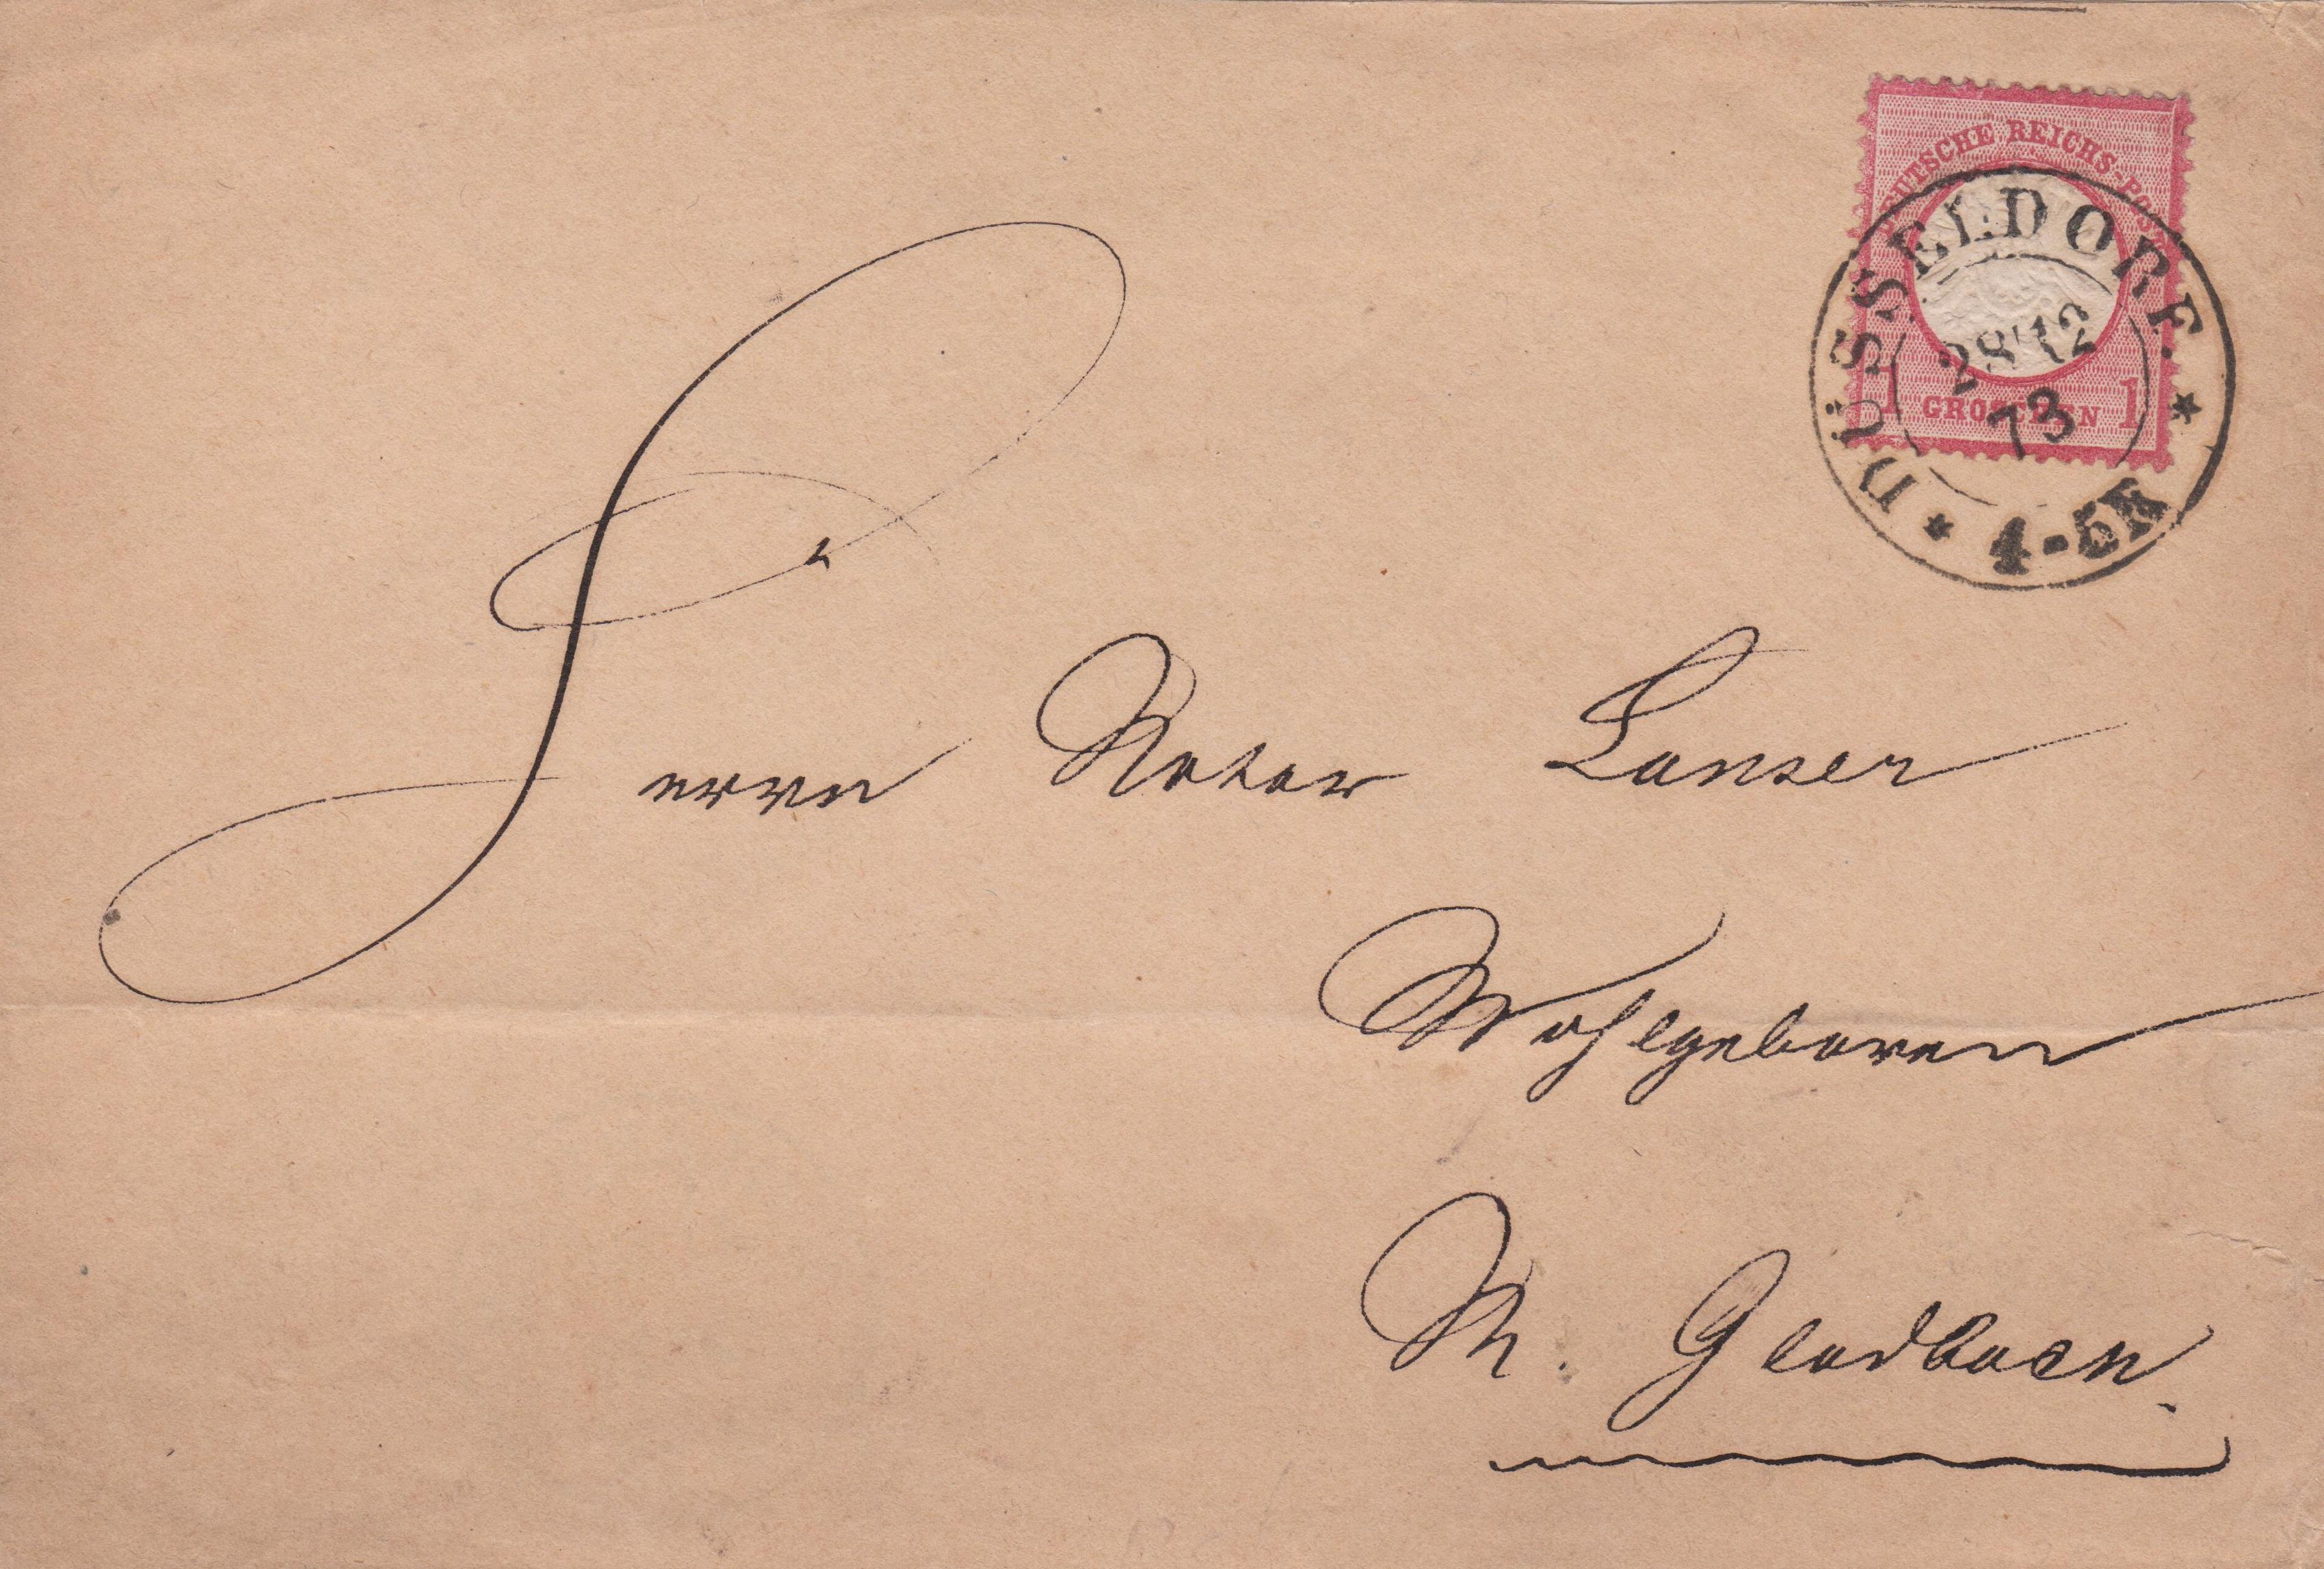 DEUTSCHE REICHS-POST
1 GROSCHEN 1
DÜSSELDORF.
28 12
73
* 4-5N *
Herrn Notar Lanser
Wohlgeboren
M. Gladbach.